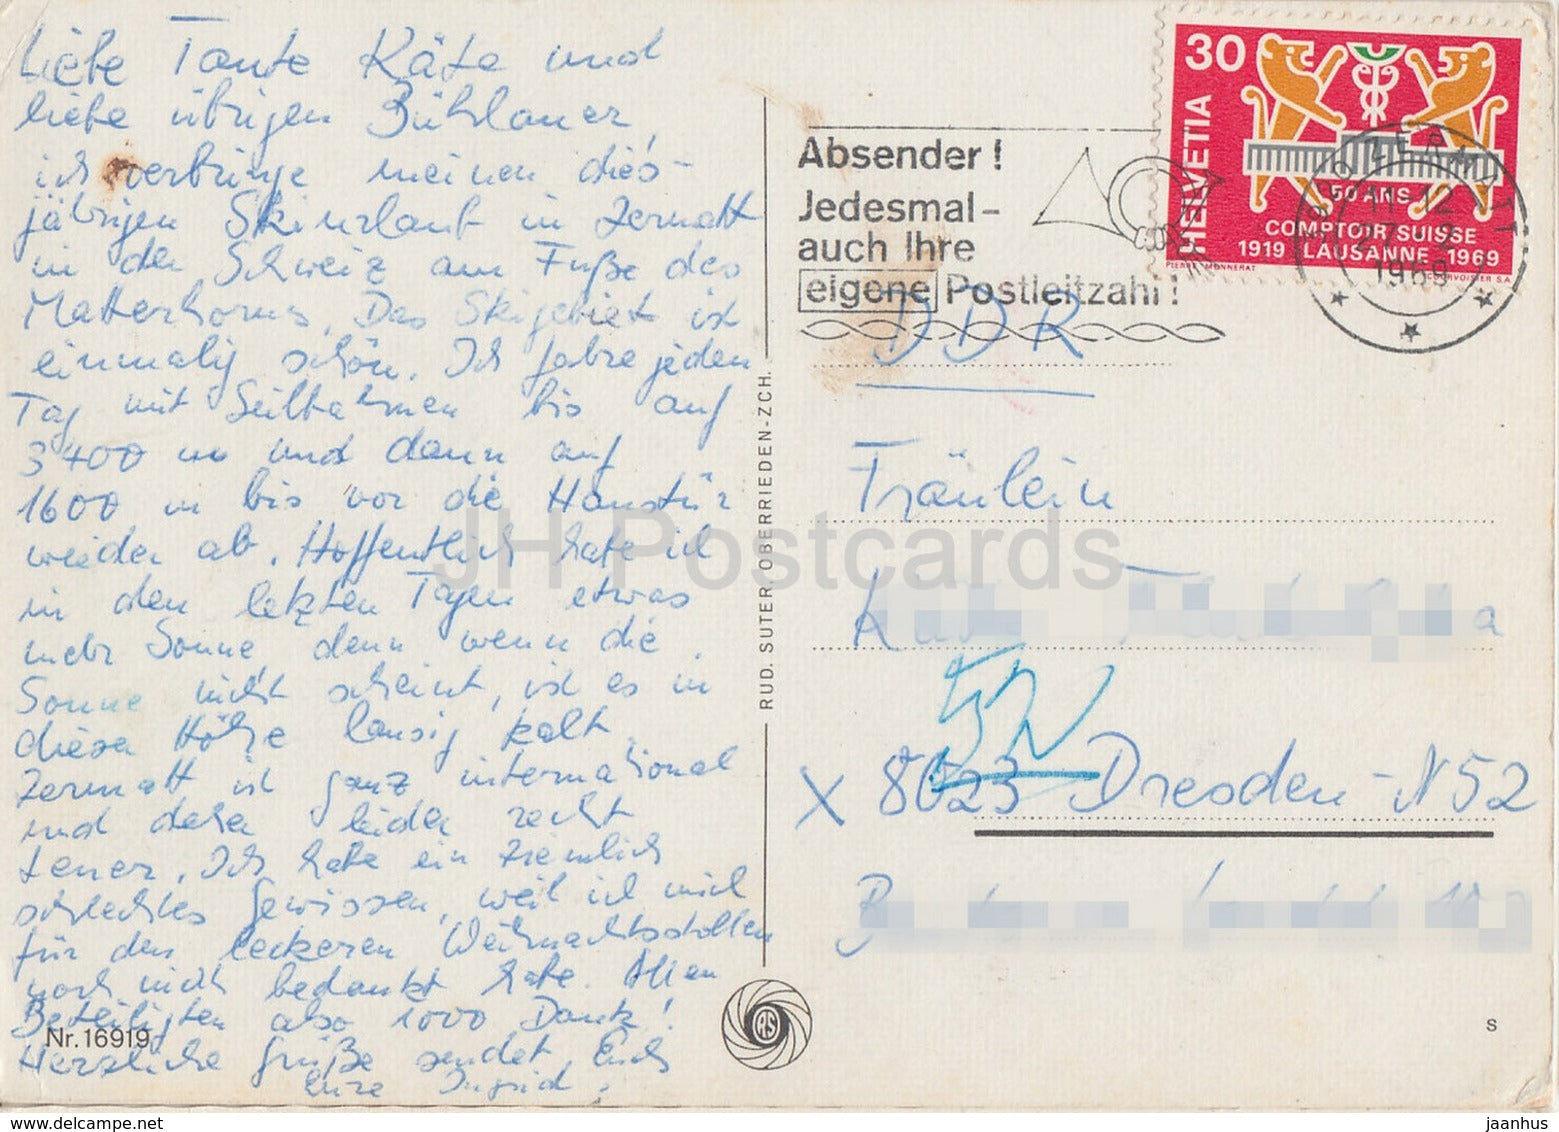 Liebe Tante Käte und
liebe übrigen Bühlauer,
ich verbringe meinen dies-
jährigen Skiurlaub in Zermatt
in der Schweiz am Fuße des
Matterhorns. Das Skigebiet ist
einmalig schön. Ich fahre jeden
Tag mit Seilbahnen bis auf
3400 m und dann auf
1600 m bis vor die Haustür
wieder ab. Hoffentlich habe ich
in den letzten Tagen etwas
mehr Sonne denn wenn die
Sonne nicht scheint, ist es in
dieser Höhe lausig kalt.
Zermatt ist ganz international
und daher leider recht
teuer. Ich habe ein ziemlich
schlechtes Gewissen, weil ich mich
für den leckeren Weihnachtsstollen
noch nicht bedankt habe. Allen
Beteiligten also 1000 Dank!
Herzliche Grüße sendet Euch
Eure Ingrid.
Nr. 16919
RUD. SUTER, OBERRIEDEN-ZCH.
RS
Absender!
Jedesmal-
auch Ihre
eigene Postleitzahl!
30
HELVETIA
50 ANS
COMPTOIR SUISSE
1919 LAUSANNE 1969
PIERRE MONNERAT
COURVOISIER S.A.
ZERMATT
11-12
1969
DDR
Fräulein
5N
X 8023 Dresden-N52
S
JH Postcards
www.delcampe.net
jaanhus